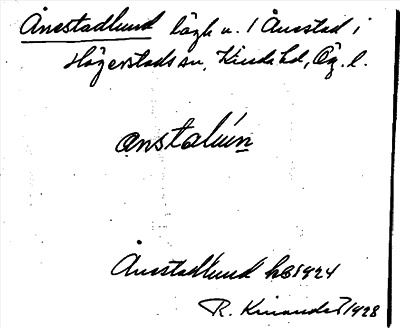 Ånestadlund lägh u. 1 Ånestad i
Hägerstads sn, Kinda hd, Ög. l.
ånstalún
Ånestadlund hs 1924
R. Kinander 1928